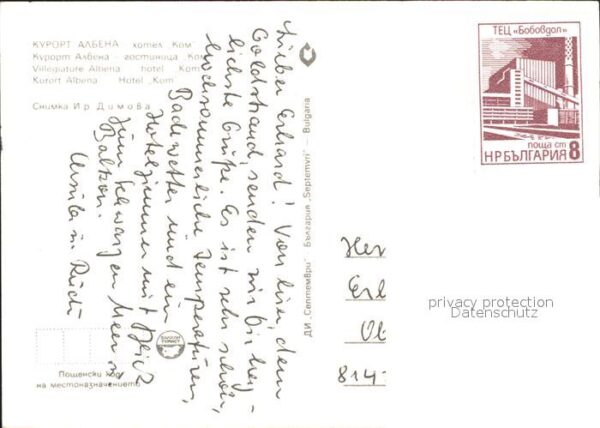 КУРОРТ АЛБЕНА хотел Ком
Курорт Албена - гостиница Ком
Villegiature Albena hotel Kom
Kurort Albena Hotel „Kom"
Снимка Ир. Димова
Lieber Erhard! Von hier, dem
Goldstrand, senden wir Dir herz-
lichste Grüße. Es ist sehr schön,
hochsommerliche Temperaturen,
Badewetter und ein
Hotelzimmer mit Blick
zum Schwarzen Meer u.
Balkon.
Ursula u. Rudi
ДИ „Септември" България „Septemvri" Bulgaria
БАЛКАНТУРИСТ
Пощенски код
на местоназначението
ТЕЦ „Бобовдол"
поща ст
НР БЪЛГАРИЯ 8
Her
Erl
Ob
814
privacy protection
Datenschutz